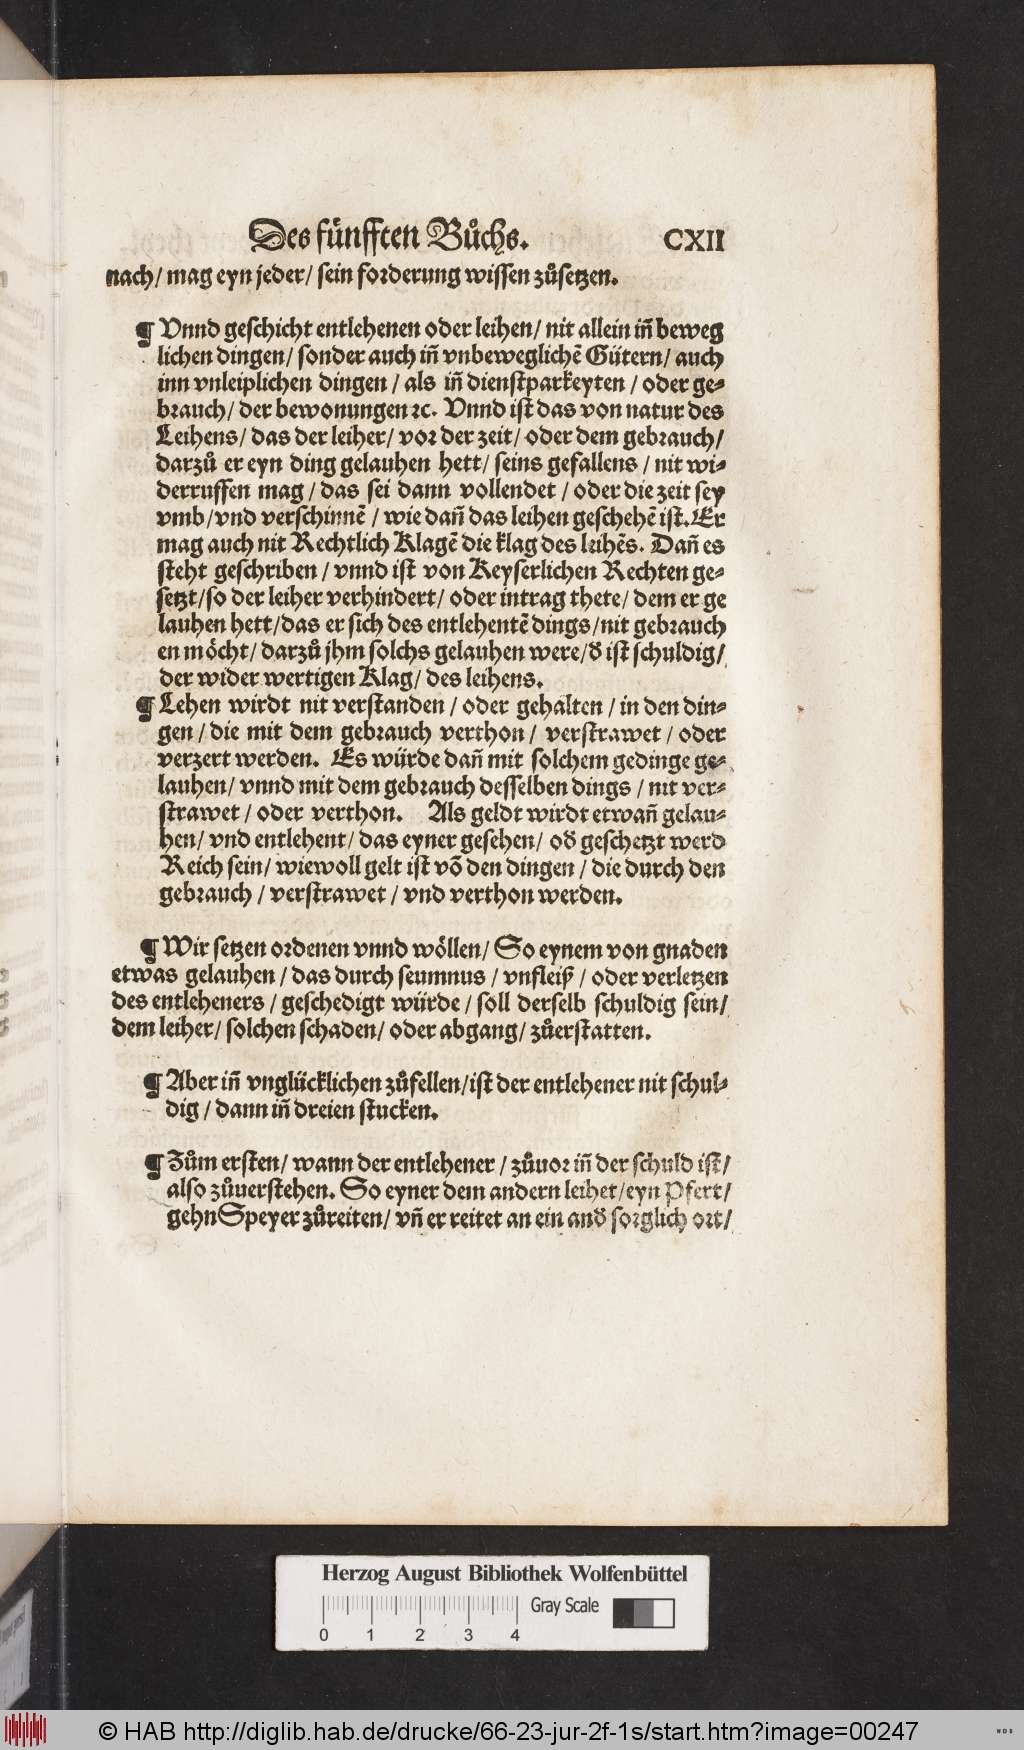 Des fünfften Bůchs. CXII
nach/ mag eyn jeder/ sein forderung wissen zůsetzen.
¶ Vnnd geschicht entlehenen oder leihen/ nit allein iñ beweg
lichen dingen/ sonder auch iñ vnbeweglichẽ Gütern/ auch
inn vnleiplichen dingen / als iñ dienstparkeyten / oder ge-
brauch/ der bewonungen ꝛc. Vnnd ist das von natur des
Leihens/ das der leiher/ vor der zeit/ oder dem gebrauch/
darzů er eyn ding gelauhen hett/ seins gefallens / nit wi-
derruffen mag / das sei dann vollendet / oder die zeit sey
vmb/vnd verschinnẽ / wie dañ das leihen geschehẽ ist. Er
mag auch nit Rechtlich Klagẽ die klag des leihẽs. Dañ es
steht geschriben / vnnd ist von Keyserlichen Rechten ge-
setzt/so der leiher verhindert/ oder intrag thete/ dem er ge
lauhen hett/das er sich des entlehentẽ dings/nit gebrauch
en möcht/ darzů jhm solchs gelauhen were/ď ist schuldig/
der wider wertigen Klag/ des leihens.
¶ Lehen wirdt nit verstanden / oder gehalten / in den din-
gen / die mit dem gebrauch verthon / verstrawet / oder
verzert werden. Es würde dañ mit solchem gedinge ge-
lauhen/ vnnd mit dem gebrauch desselben dings / nit ver-
strawet / oder verthon. Als geldt wirdt etwañ gelau-
hen/ vnd entlehent/ das eyner gesehen/ oď geschetzt werd
Reich sein/ wiewoll gelt ist võ den dingen / die durch den
gebrauch / verstrawet / vnd verthon werden.
¶ Wir setzen ordenen vnnd wöllen/ So eynem von gnaden
etwas gelauhen / das durch seumnus / vnfleiß / oder verletzen
des entleheners / geschedigt würde / soll derselb schuldig sein/
dem leiher/ solchen schaden/ oder abgang/ zůerstatten.
¶ Aber iñ vnglücklichen zůfellen/ist der entlehener nit schul-
dig / dann iñ dreien stucken.
¶ Zům ersten/ wann der entlehener / zůuor iñ der schuld ist/
also zůuerstehen. So eyner dem andern leihet/eyn Pfert/
gehn Speyer zůreiten/ vñ er reitet an ein anď sorglich ort/
Herzog August Bibliothek Wolfenbüttel
Gray Scale
0 1 2 3 4
© HAB http://diglib.hab.de/drucke/66-23-jur-2f-1s/start.htm?image=00247